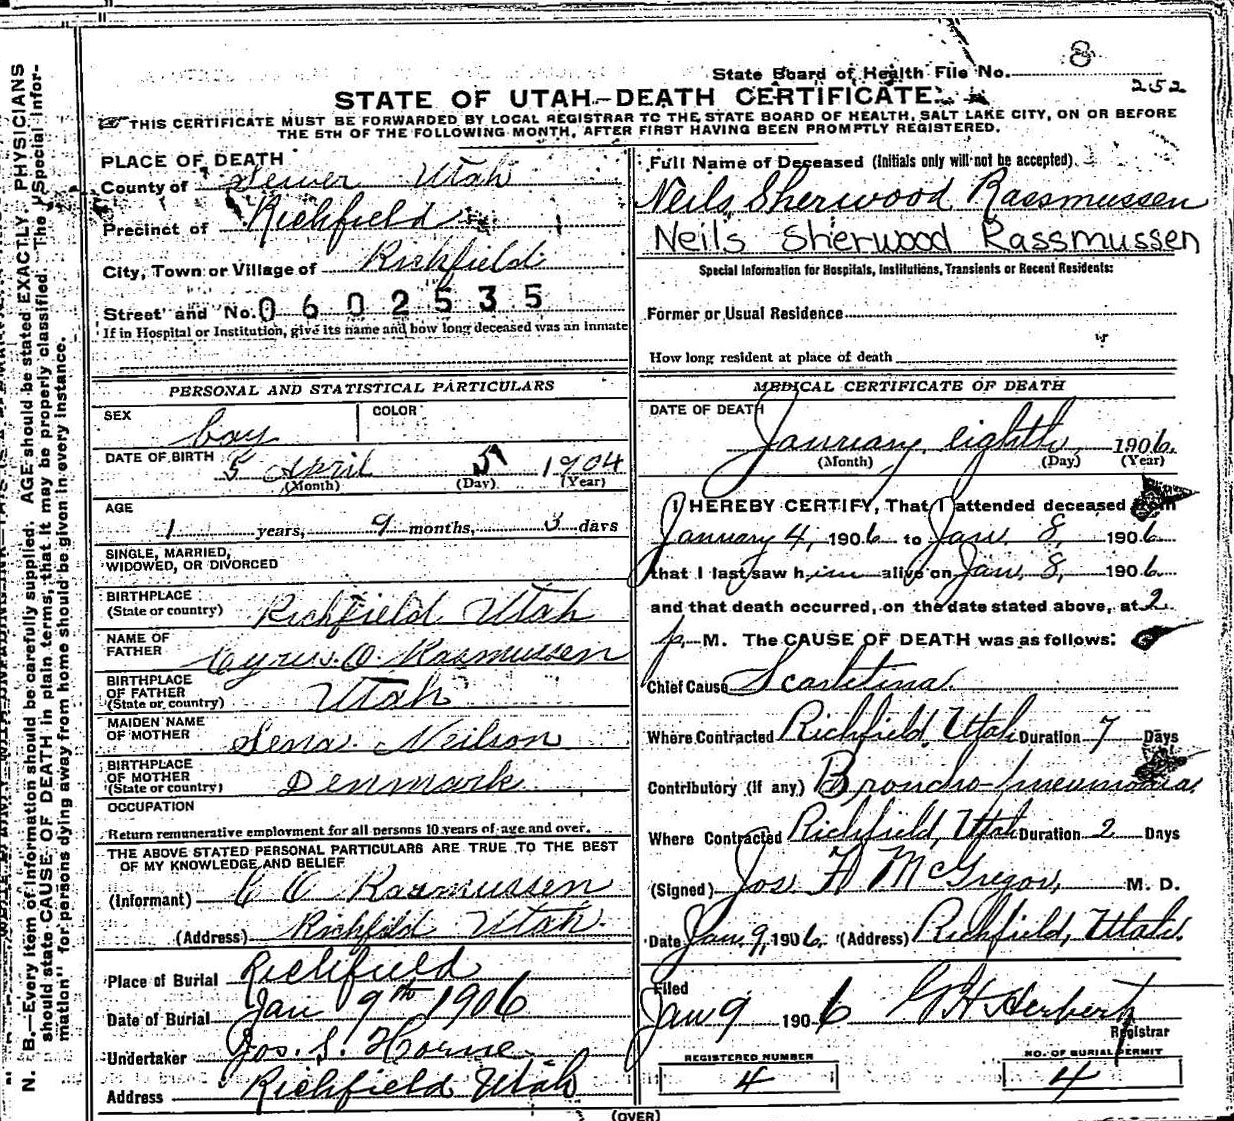 State Board of Health File No. 8
252
STATE OF UTAH—DEATH CERTIFICATE.
THIS CERTIFICATE MUST BE FORWARDED BY LOCAL REGISTRAR TO THE STATE BOARD OF HEALTH, SALT LAKE CITY, ON OR BEFORE
THE 5TH OF THE FOLLOWING MONTH, AFTER FIRST HAVING BEEN PROMPTLY REGISTERED.
PLACE OF DEATH
County of Sevier Utah
Precinct of Richfield
City, Town or Village of Richfield
Street and No. 0602535
If in Hospital or Institution, give its name and how long deceased was an inmate
PERSONAL AND STATISTICAL PARTICULARS
SEX boy COLOR
DATE OF BIRTH 5 April 5 1904
(Month) (Day) (Year)
AGE
1 years, 9 months, 3 days
SINGLE, MARRIED,
WIDOWED, OR DIVORCED
BIRTHPLACE
(State or country) Richfield Utah
NAME OF
FATHER Cyrus O. Rasmussen
BIRTHPLACE
OF FATHER
(State or country) Utah
MAIDEN NAME
OF MOTHER Sena Neilson
BIRTHPLACE
OF MOTHER
(State or country) Denmark
OCCUPATION
Return remunerative employment for all persons 10 years of age and over.
THE ABOVE STATED PERSONAL PARTICULARS ARE TRUE TO THE BEST
OF MY KNOWLEDGE AND BELIEF
(Informant) C O Rasmussen
(Address) Richfield Utah.
Place of Burial Richfield
Date of Burial Jan 9th 1906
Undertaker Jos. S. Horne
Address Richfield Utah
Full Name of Deceased (Initials only will not be accepted)
Neils Sherwood Rassmussen
Neils Sherwood Rassmussen
Special Information for Hospitals, Institutions, Transients or Recent Residents:
Former or Usual Residence
How long resident at place of death
MEDICAL CERTIFICATE OF DEATH
DATE OF DEATH
January eighth, 1906.
(Month) (Day) (Year)
I HEREBY CERTIFY, That I attended deceased from
January 4, 1906 to Jan. 8, 1906
that I last saw him alive on Jan. 8, 1906.
and that death occurred, on the date stated above, at 2
p. M. The CAUSE OF DEATH was as follows:
Chief Cause Scarletina.
Where Contracted Richfield, Utah Duration 7 Days
Contributory (if any) Broncho-pneumonia.
Where Contracted Richfield, Utah Duration 2 Days
(Signed) Jos. H McGregor, M. D.
Date Jan. 9, 1906. (Address) Richfield, Utah.
Filed
Jan 9 1906 G H Herbert
Registrar
REGISTERED NUMBER
4
NO. OF BURIAL PERMIT
4
(OVER)
N. B.—Every item of information should be carefully supplied. AGE should be stated EXACTLY. PHYSICIANS
should state CAUSE OF DEATH in plain terms, that it may be properly classified. The "Special Infor-
mation" for persons dying away from home should be given in every instance.